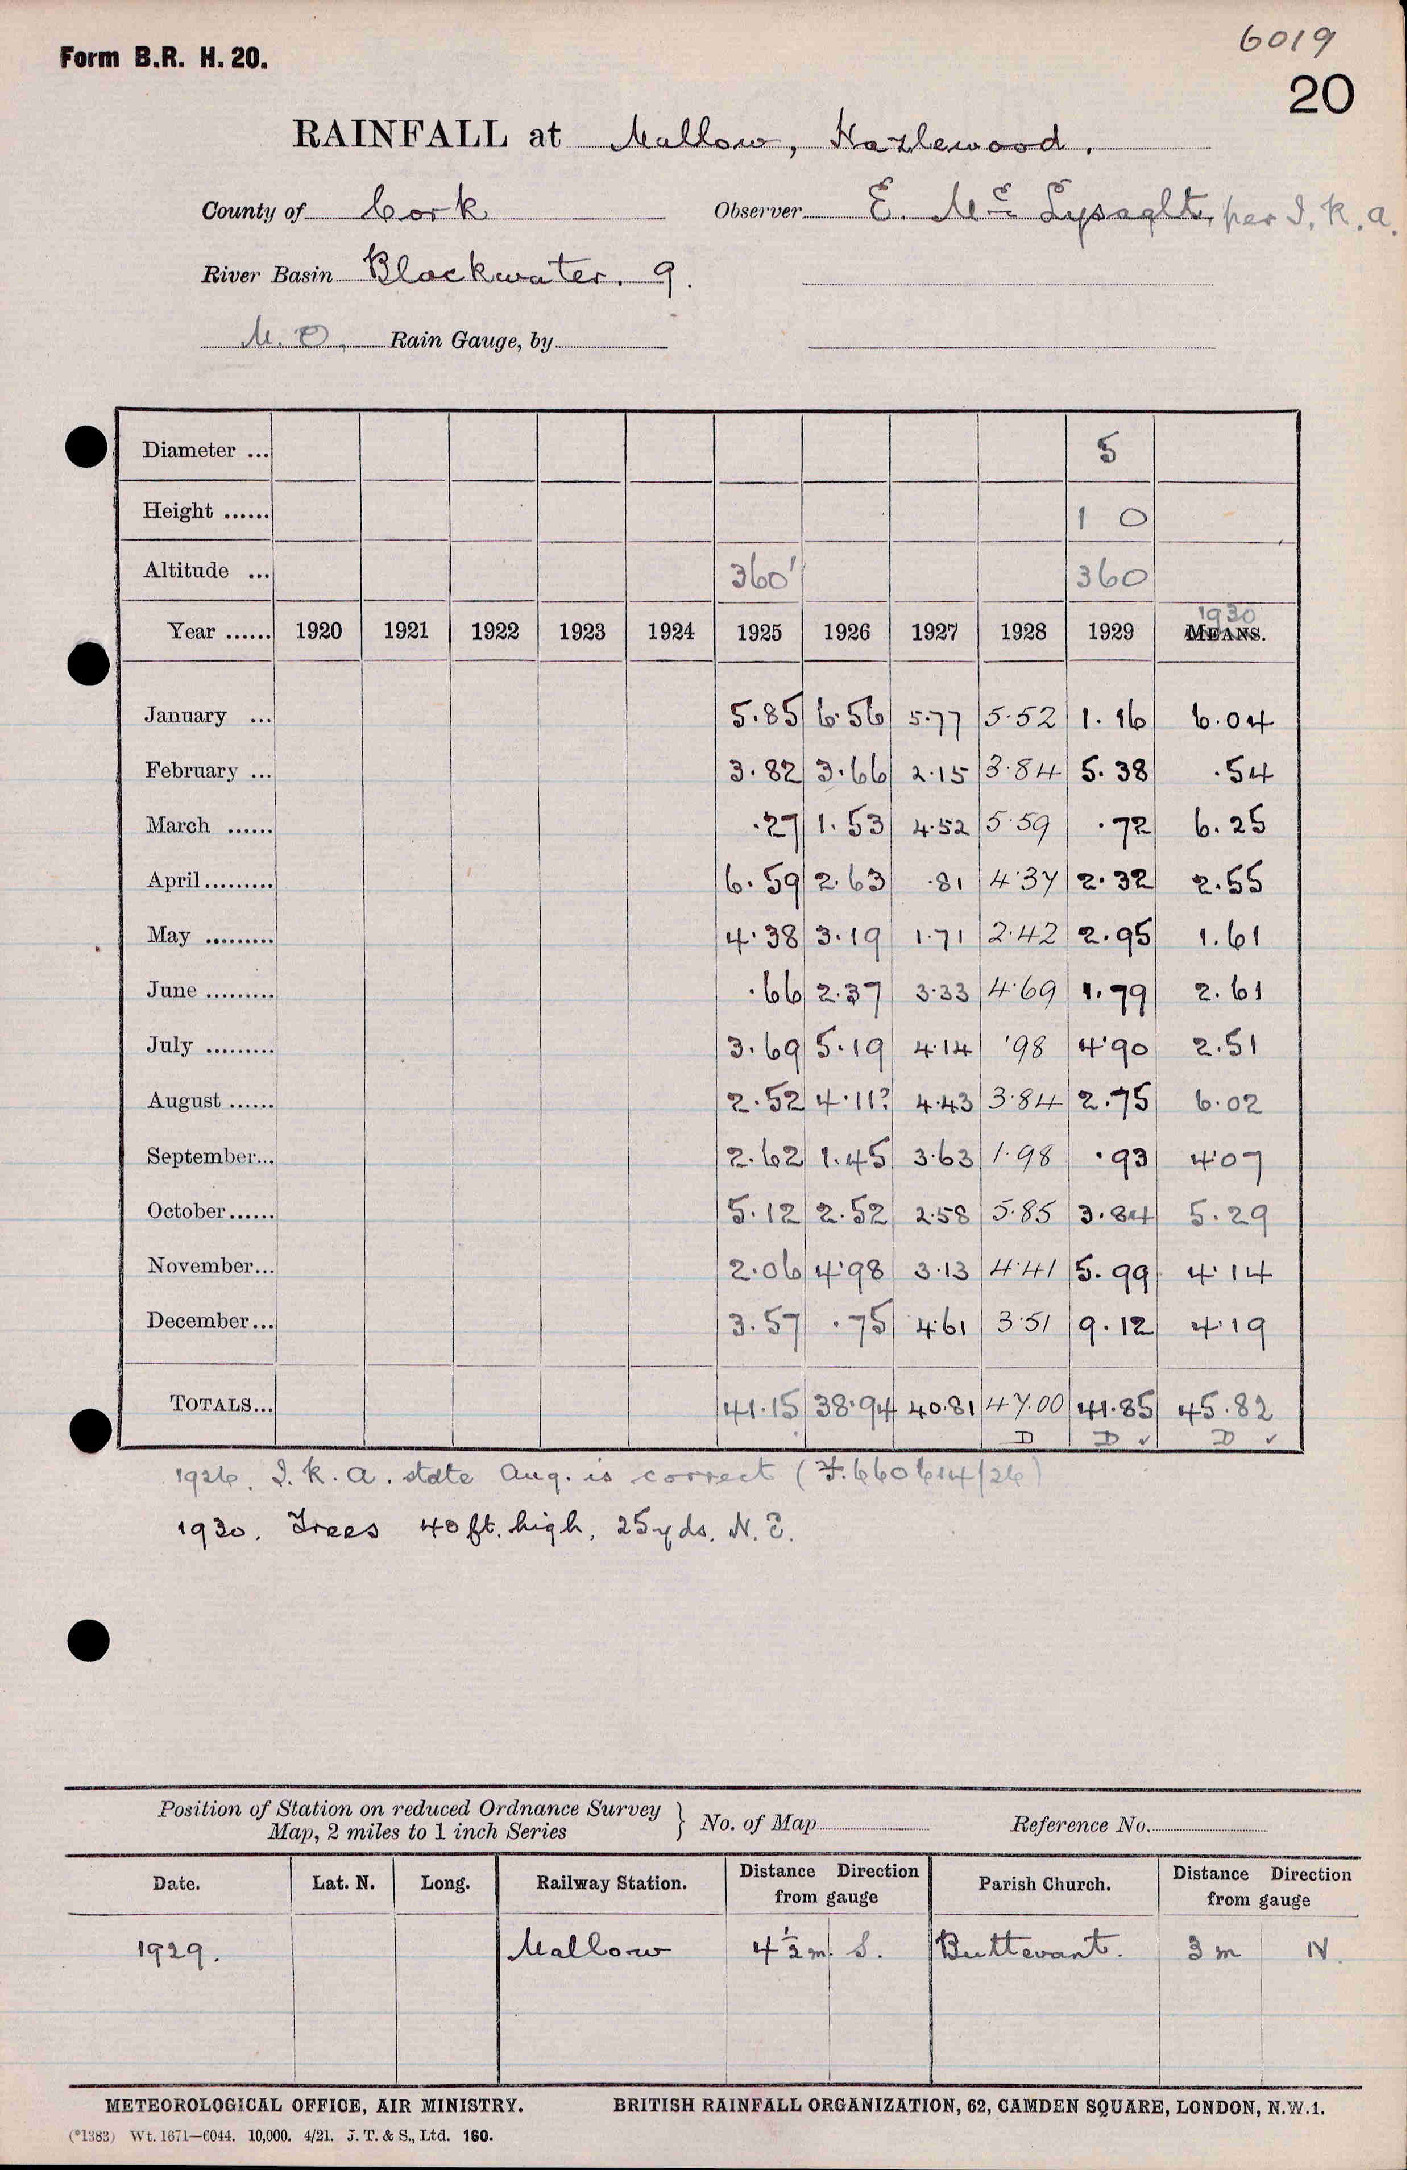 6019
Form B.R. H. 20.
20
RAINFALL at Mallow, Hazlewood.
County of Cork Observer E. Mc Lysaght, per I.R.A.
River Basin Blackwater. 9.
M.O. Rain Gauge, by
Diameter ... 5
Height ...... 1 0
Altitude ... 360' 360
1930
Year ...... 1920 1921 1922 1923 1924 1925 1926 1927 1928 1929 MEANS.
January ... 5.85 6.56 5.77 5.52 1.16 6.04
February ... 3.82 3.66 2.15 3.84 5.38 .54
March ...... .27 1.53 4.52 5.59 .72 6.25
April ......... 6.59 2.63 .81 4.37 2.32 2.55
May ......... 4.38 3.19 1.71 2.42 2.95 1.61
June ......... .66 2.37 3.33 4.69 1.79 2.61
July ......... 3.69 5.19 4.14 .98 4.90 2.51
August ...... 2.52 4.11? 4.43 3.84 2.75 6.02
September... 2.62 1.45 3.63 1.98 .93 4.07
October ...... 5.12 2.52 2.58 5.85 3.84 5.29
November... 2.06 4.98 3.13 4.41 5.99 4.14
December... 3.57 .75 4.61 3.51 9.12 4.19
TOTALS... 41.15 38.94 40.81 47.00 41.85 45.82
D D ✓ D ✓
1926. I.R.A. state Aug. is correct (F.660614/26)
1930. Trees 40 ft. high, 25 yds. N.E.
Position of Station on reduced Ordnance Survey
Map, 2 miles to 1 inch Series } No. of Map Reference No.
Date. Lat. N. Long. Railway Station. Distance Direction from gauge Parish Church. Distance Direction from gauge
1929. Mallow 4½ m. S. Buttevant. 3 m N.
METEOROLOGICAL OFFICE, AIR MINISTRY. BRITISH RAINFALL ORGANIZATION, 62, CAMDEN SQUARE, LONDON, N.W.1.
(*1383) Wt. 1671—6044. 10,000. 4/21. J. T. & S., Ltd. 160.